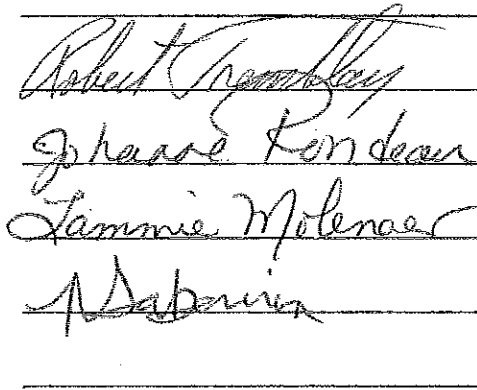 Robert Tremblay
Johanne Rondeau
Tammie Molenaer